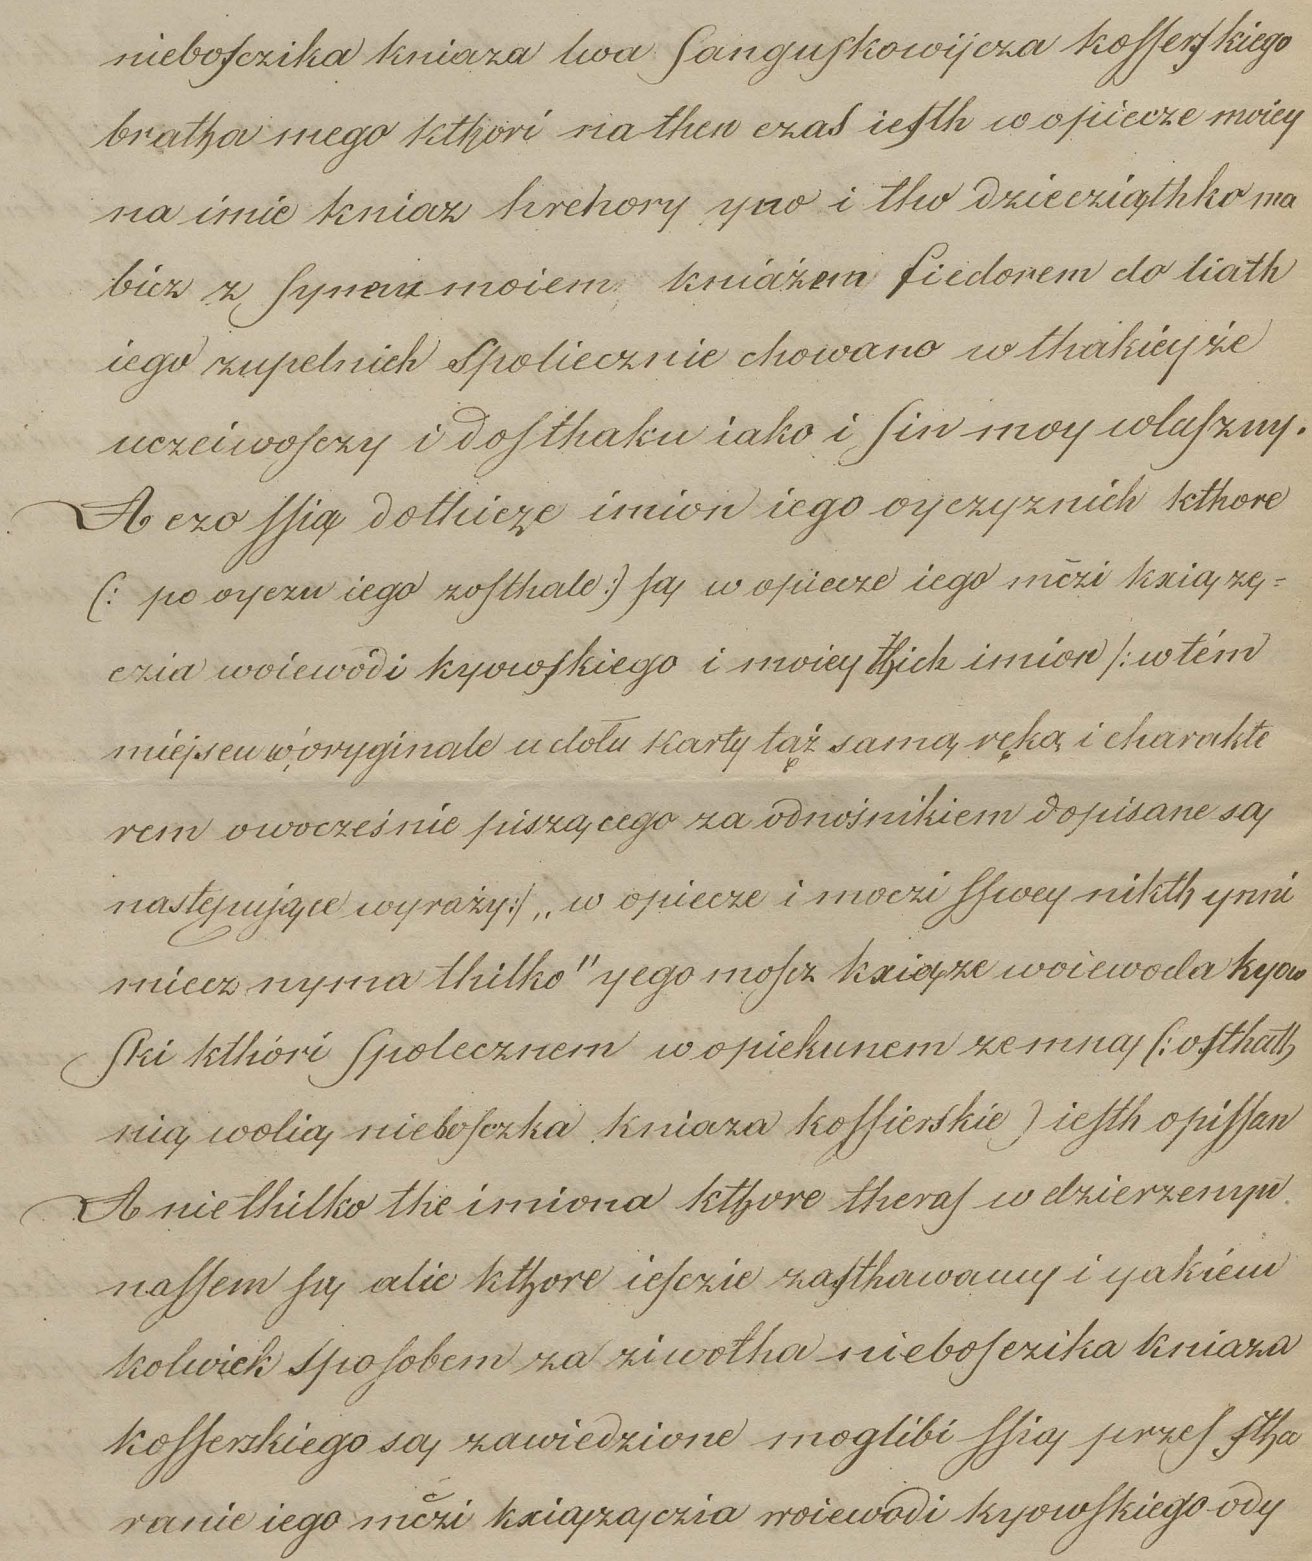 niebosczika kniaza lwa Sanguskowijcza kosserskiego
bratha mego kthori na then czas iesth w opiecze moiey
na imie kniaz hrehory yno i tho dziecziąthko ma
bicz z synem moiem kniáżem fiedorem do liath
iego zupelnich spoliecznie chowano w thakieyże
uczciwosczy i dosthaku iako i sin moy wlaszny.
A czo ssią dothicze imion iego oyczyznich kthore
(: po oyczu iego zosthale :) są w opiecze iego mczi kxiązę=
czia woiewódi kyowskiego i moiey thich imion /: w tém
miéjscu w oryginale u dołu karty tąż samą ręką i charakte
rem owocześnie piszącego za odnośnikiem dopisane są
następujące wyrazy:/ „w opiecze i moczi sswey nikth ynni
miecz nyma thilko" yego moscz kxiąze woiewoda kyow
ski kthóri spolecznem w opiekunem ze mną (: osthath
nią wolią niebosczka kniaza kossierskie ) iesth opissan
A nie thilko the imiona kthore theras w dzierzenyu
nassem są alie kthore iesczie zasthawamy i yakiem
kolwiek sposobem za ziwotha niebosczika kniaza
kosserskiego są zawiedzione moglibi ssią przes stha
ranie iego mczi kxiązączia woiewodi kyowskiego ody